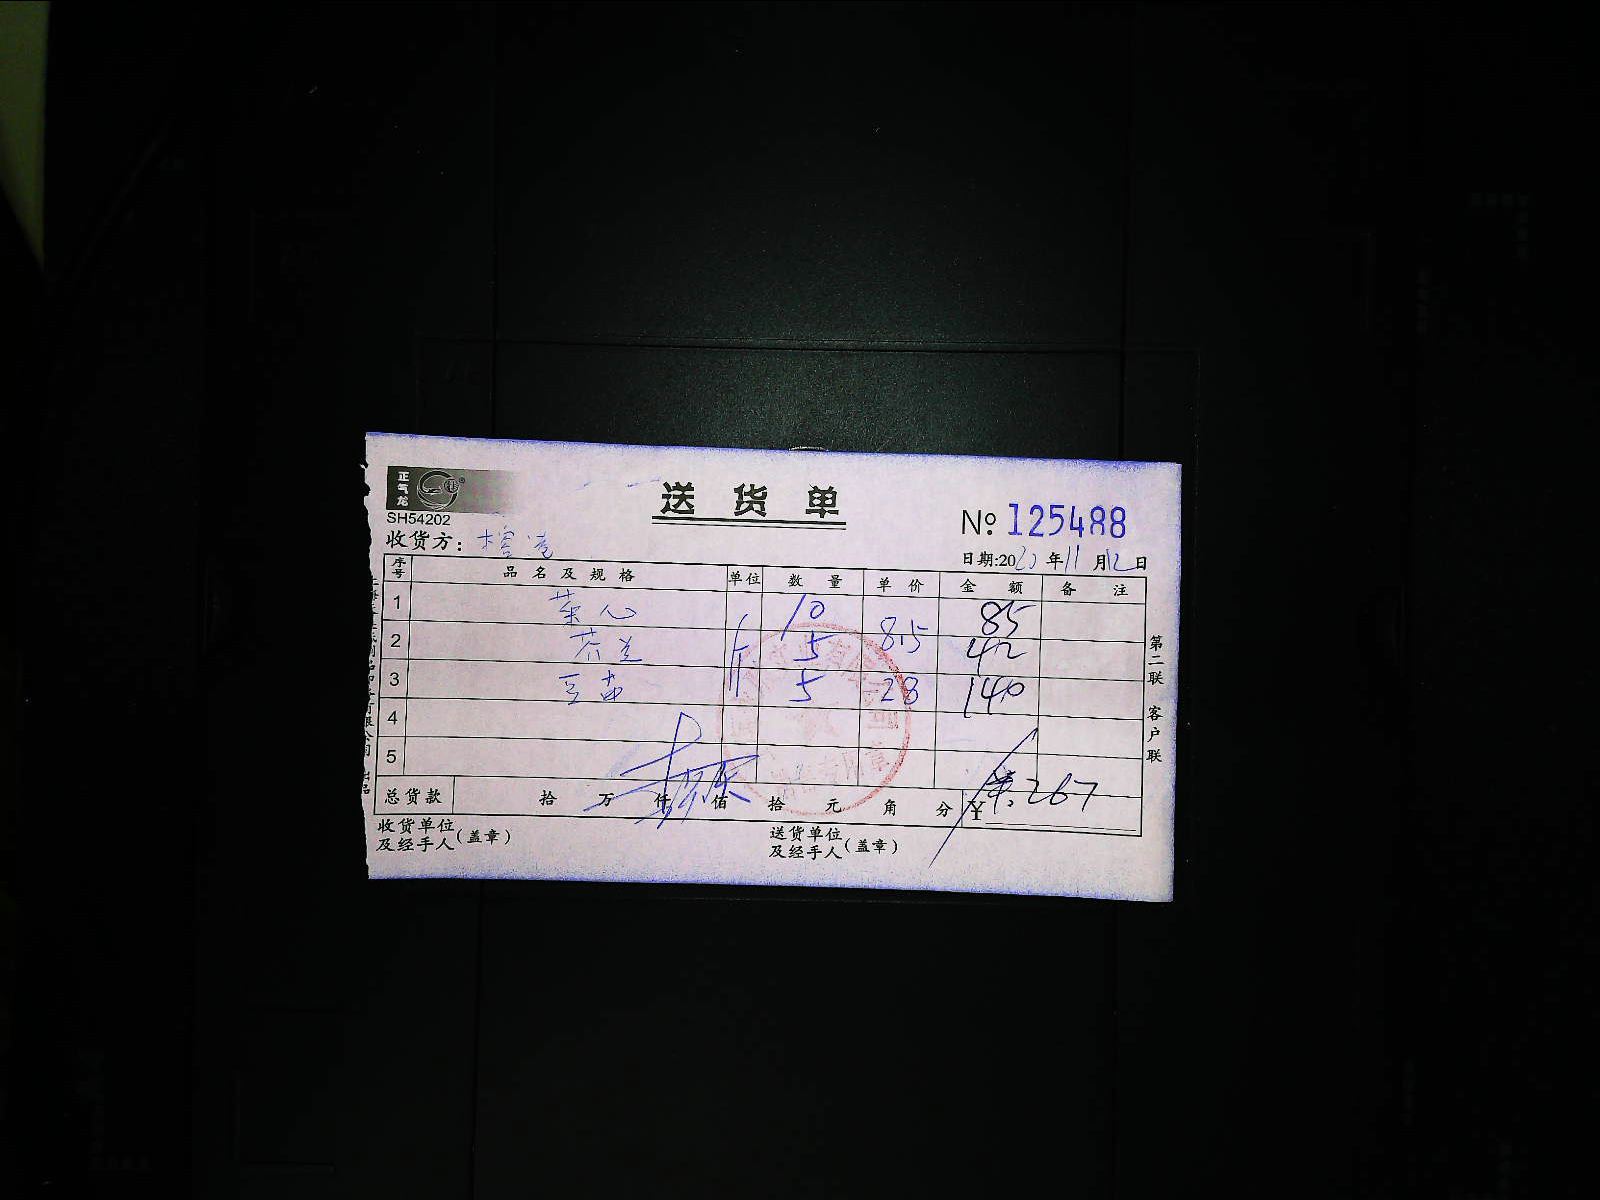 正气龙
SH54202
送货单
№ 125488
收货方:
日期:20 年11月12日
序号 品名及规格 单位 数量 单价 金额 备注
1 菜心 10 85
2 芥兰 5 8.5 42
3 豆苗 5 28 140
4
5
总货款 拾 万 仟 佰 拾 元 角 分 ¥ 267
收货单位及经手人(盖章) 送货单位及经手人(盖章)
第二联 客户联